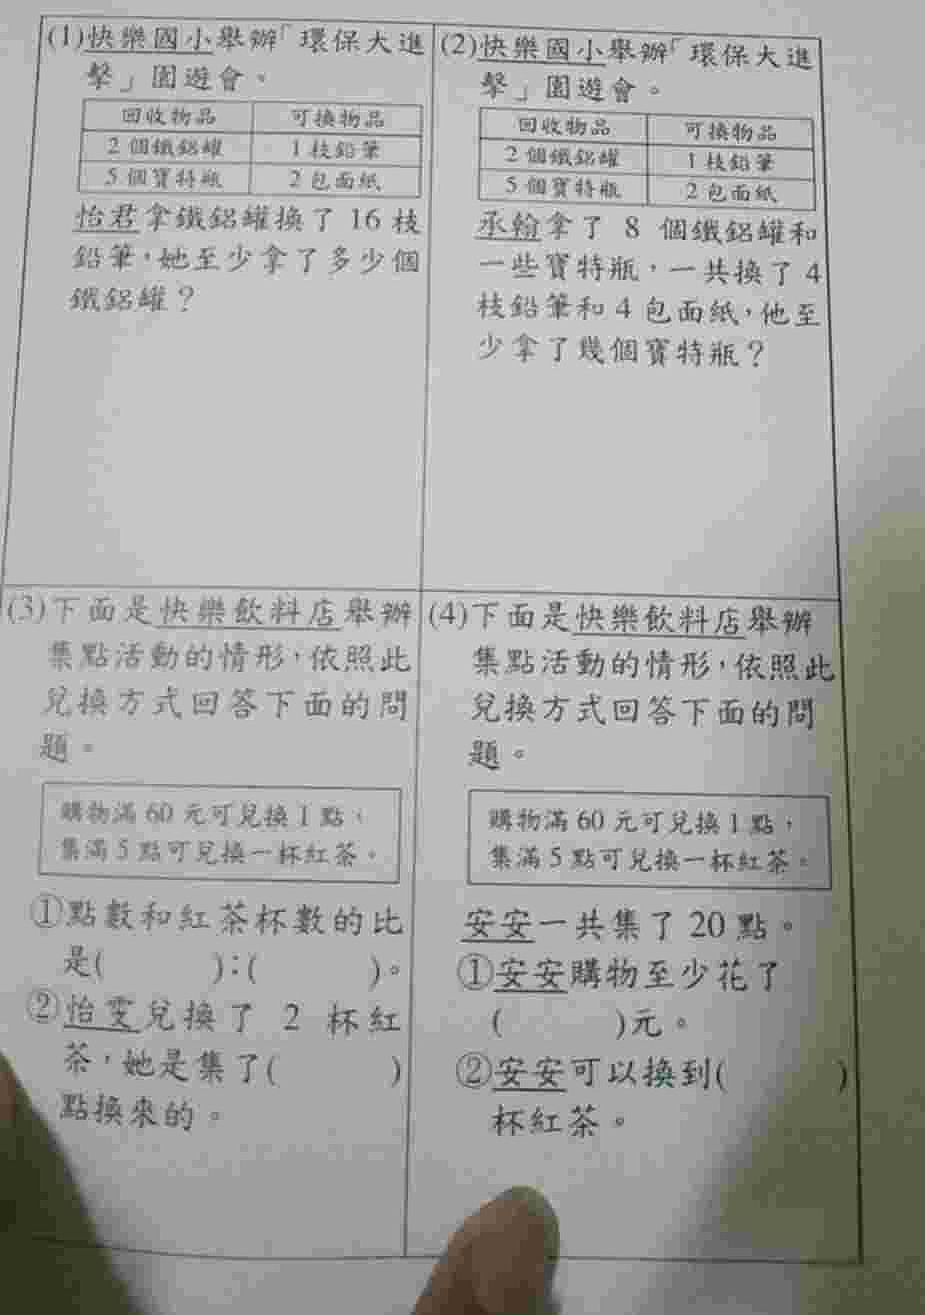 (1)快樂國小舉辦「環保大進
擊」園遊會。
回收物品 可換物品
2 個鐵鋁罐 1 枝鉛筆
5 個寶特瓶 2 包面紙
怡君拿鐵鋁罐換了 16 枝
鉛筆，她至少拿了多少個
鐵鋁罐？
(2)快樂國小舉辦「環保大進
擊」園遊會。
回收物品 可換物品
2 個鐵鋁罐 1 枝鉛筆
5 個寶特瓶 2 包面紙
承翰拿了 8 個鐵鋁罐和
一些寶特瓶，一共換了 4
枝鉛筆和 4 包面紙，他至
少拿了幾個寶特瓶？
(3)下面是快樂飲料店舉辦
集點活動的情形，依照此
兌換方式回答下面的問
題。
購物滿 60 元可兌換 1 點，
集滿 5 點可兌換一杯紅茶。
①點數和紅茶杯數的比
是( ):( )。
②怡雯兌換了 2 杯紅
茶，她是集了( )
點換來的。
(4)下面是快樂飲料店舉辦
集點活動的情形，依照此
兌換方式回答下面的問
題。
購物滿 60 元可兌換 1 點，
集滿 5 點可兌換一杯紅茶。
安安一共集了 20 點。
①安安購物至少花了
( )元。
②安安可以換到( )
杯紅茶。